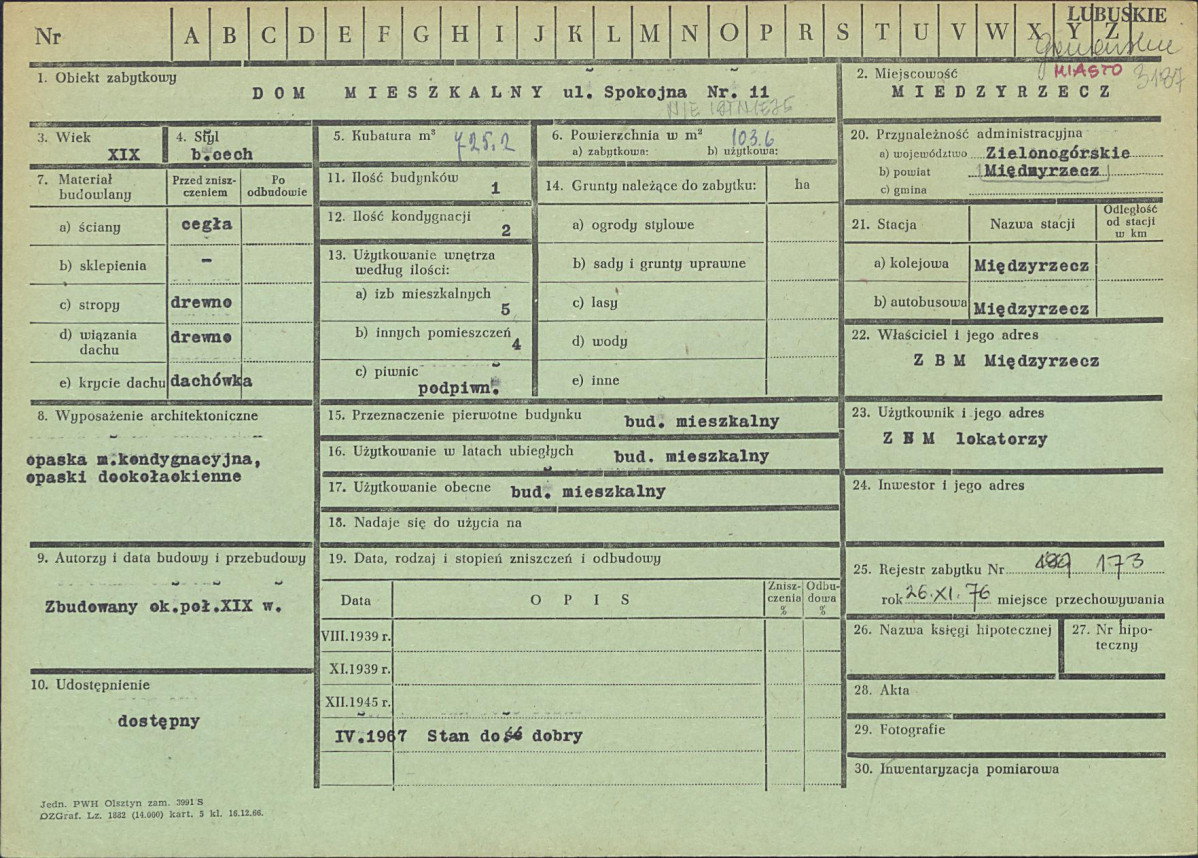 Nr A B C D E F G H I J K L M N O P R S T U V W X Y Z
LUBUSKIE
MIASTO 3187
1. Obiekt zabytkowy
DOM MIESZKALNY ul. Spokojna Nr. 11
NIE ISTNIEJE
2. Miejscowość
MIEDZYRZECZ
3. Wiek
XIX
4. Styl
b.cech
5. Kubatura m³ 725.2
6. Powierzchnia w m² 103.6
a) zabytkowa: b) użytkowa:
20. Przynależność administracyjna
a) województwo Zielonogórskie
b) powiat Międzyrzecz
c) gmina
7. Materiał budowlany
Przed zniszczeniem
Po odbudowie
a) ściany cegła
b) sklepienia -
c) stropy drewno
d) wiązania dachu drewno
e) krycie dachu dachówka
11. Ilość budynków 1
12. Ilość kondygnacji 2
13. Użytkowanie wnętrza
według ilości:
a) izb mieszkalnych 5
b) innych pomieszczeń 4
c) piwnic
podpiwn.
14. Grunty należące do zabytku: ha
a) ogrody stylowe
b) sady i grunty uprawne
c) lasy
d) wody
e) inne
21. Stacja Nazwa stacji
Odległość
od stacji
w km
a) kolejowa Międzyrzecz
b) autobusowa Międzyrzecz
22. Właściciel i jego adres
Z B M Międzyrzecz
8. Wyposażenie architektoniczne
opaska m.kondygnacyjna,
opaski dookołaokienne
15. Przeznaczenie pierwotne budynku bud. mieszkalny
16. Użytkowanie w latach ubiegłych bud. mieszkalny
17. Użytkowanie obecne bud. mieszkalny
18. Nadaje się do użycia na
23. Użytkownik i jego adres
Z B M lokatorzy
24. Inwestor i jego adres
9. Autorzy i data budowy i przebudowy
Zbudowany ok.poł.XIX w.
10. Udostępnienie
dostępny
19. Data, rodzaj i stopień zniszczeń i odbudowy
Data O P I S
Znisz-
czenia
%
Odbu-
dowa
%
VIII.1939 r.
XI.1939 r.
XII.1945 r.
IV.1967 Stan dość dobry
25. Rejestr zabytku Nr 173
rok 26.XI.76 miejsce przechowywania
26. Nazwa księgi hipotecznej
27. Nr hipo-
teczny
28. Akta
29. Fotografie
30. Inwentaryzacja pomiarowa
Jedn. PWH Olsztyn zam. 3991 S
OZGraf. Lz. 1882 (14.000) kart. 5 kl. 16.12.66.